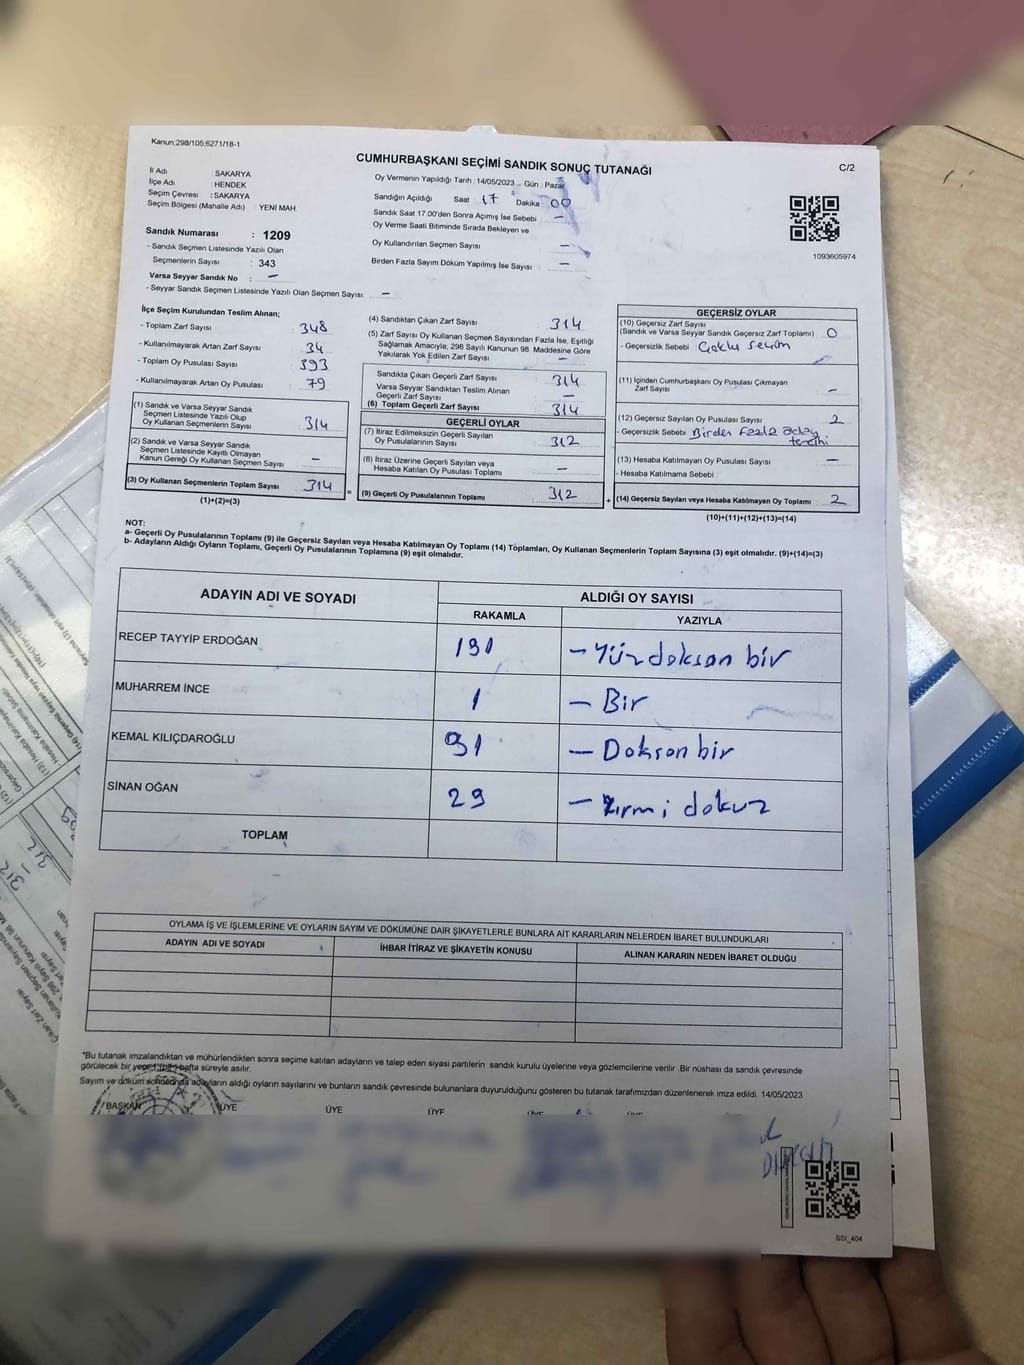 Kanun;298/105;6271/18-1
CUMHURBAŞKANI SEÇİMİ SANDIK SONUÇ TUTANAĞI
C/2
İl Adı : SAKARYA
İlçe Adı : HENDEK
Seçim Çevresi : SAKARYA
Seçim Bölgesi (Mahalle Adı) : YENİ MAH.
Oy Vermenin Yapıldığı Tarih : 14/05/2023 - Gün : Pazar
Sandığın Açıldığı Saat 17 Dakika 00
Sandık Saat 17.00'den Sonra Açımış İse Sebebi —
Oy Verme Saati Bitiminde Sırada Bekleyen ve
Oy Kullandırılan Seçmen Sayısı —
Birden Fazla Sayım Döküm Yapılmış İse Sayısı : —
1093605974
Sandık Numarası : 1209
- Sandık Seçmen Listesinde Yazılı Olan
Seçmenlerin Sayısı : 343
Varsa Seyyar Sandık No : —
- Seyyar Sandık Seçmen Listesinde Yazılı Olan Seçmen Sayısı: —
İlçe Seçim Kurulundan Teslim Alınan;
- Toplam Zarf Sayısı : 348
- Kullanılmayarak Artan Zarf Sayısı : 34
- Toplam Oy Pusulası Sayısı : 393
- Kullanılmayarak Artan Oy Pusulası : 79
(1) Sandık ve Varsa Seyyar Sandık
Seçmen Listesinde Yazılı Olup
Oy Kullanan Seçmenlerin Sayısı : 314
(2) Sandık ve Varsa Seyyar Sandık
Seçmen Listesinde Kayıtlı Olmayan
Kanun Gereği Oy Kullanan Seçmen Sayısı : —
(3) Oy Kullanan Seçmenlerin Toplam Sayısı : 314
(1)+(2)=(3)
(4) Sandıktan Çıkan Zarf Sayısı : 314
(5) Zarf Sayısı Oy Kullanan Seçmen Sayısından Fazla İse, Eşitliği
Sağlamak Amacıyla, 298 Sayılı Kanunun 98. Maddesine Göre
Yakılarak Yok Edilen Zarf Sayısı : —
Sandıkta Çıkan Geçerli Zarf Sayısı : 314
Varsa Seyyar Sandıktan Teslim Alınan
Geçerli Zarf Sayısı : —
(6) Toplam Geçerli Zarf Sayısı : 314
GEÇERLİ OYLAR
(7) İtiraz Edilmeksizin Geçerli Sayılan
Oy Pusulalarının Sayısı : 312
(8) İtiraz Üzerine Geçerli Sayılan veya
Hesaba Katılan Oy Pusulası Toplamı : —
= (9) Geçerli Oy Pusulalarının Toplamı : 312
GEÇERSİZ OYLAR
(10) Geçersiz Zarf Sayısı
(Sandık ve Varsa Seyyar Sandık Geçersiz Zarf Toplamı) : 0
- Geçersizlik Sebebi : Çoklu seçim
(11) İçinden Cumhurbaşkanı Oy Pusulası Çıkmayan
Zarf Sayısı : —
(12) Geçersiz Sayılan Oy Pusulası Sayısı : 2
- Geçersizlik Sebebi : Birden Fazla aday
tercihi
(13) Hesaba Katılmayan Oy Pusulası Sayısı : —
- Hesaba Katılmama Sebebi :
+ (14) Geçersiz Sayılan veya Hesaba Katılmayan Oy Toplamı : 2
(10)+(11)+(12)+(13)=(14)
NOT:
a- Geçerli Oy Pusulalarının Toplamı (9) ile Geçersiz Sayılan veya Hesaba Katılmayan Oy Toplamı (14) Toplamları, Oy Kullanan Seçmenlerin Toplam Sayısına (3) eşit olmalıdır. (9)+(14)=(3)
b- Adayların Aldığı Oyların Toplamı, Geçerli Oy Pusulalarının Toplamına (9) eşit olmalıdır.
ADAYIN ADI VE SOYADI
ALDIĞI OY SAYISI
RAKAMLA YAZIYLA
RECEP TAYYİP ERDOĞAN 191 – Yüzdoksan bir
MUHARREM İNCE 1 – Bir
KEMAL KILIÇDAROĞLU 91 – Doksan bir
SİNAN OĞAN 29 – Yirmi dokuz
TOPLAM
OYLAMA İŞ VE İŞLEMLERİNE VE OYLARIN SAYIM VE DÖKÜMÜNE DAİR ŞİKAYETLERLE BUNLARA AİT KARARLARIN NELERDEN İBARET BULUNDUKLARI
ADAYIN ADI VE SOYADI İHBAR İTİRAZ VE ŞİKAYETİN KONUSU ALINAN KARARIN NEDEN İBARET OLDUĞU
*Bu tutanak imzalandıktan ve mühürlendikten sonra seçime katılan adayların ve talep eden siyasi partilerin sandık kurulu üyelerine veya gözlemcilerine verilir. Bir nüshası da sandık çevresinde
görülecek bir yere 1 (bir) hafta süreyle asılır.
Sayım ve döküm sonucunda adayların aldığı oyların sayılarını ve bunların sandık çevresinde bulunanlara duyurulduğunu gösteren bu tutanak tarafımızdan düzenlenerek imza edildi. 14/05/2023
BAŞKAN ÜYE ÜYE ÜYE ÜYE ÜYE
SSI_404